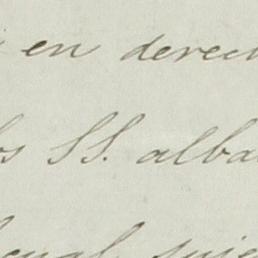 en derech
os SS. alba
cual suje